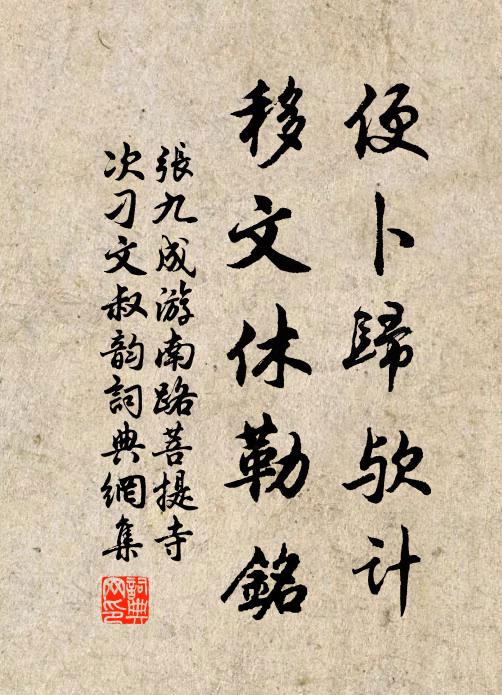 便卜歸欤计
移文休勒銘
張九成游南路菩提寺
次刁文叔韵詞典網集
詞典网印